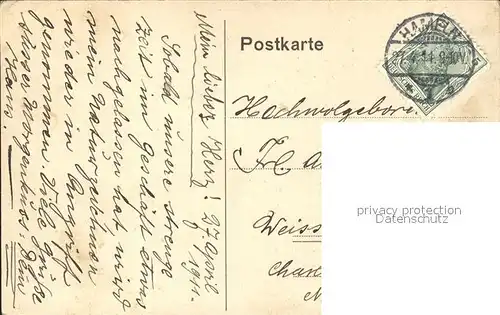 Mein liebes Herz! 27. April
1911.
Sobald unsere strenge
Zeit im Geschäft etwas
nachgelassen hat wird
mein Naturzeichnen
wieder in Angriff
genommen. Viele Grüße
Morgenkuss. Dein
Hans.
Postkarte
HAMELN
Hochwolgebore.
Frl. A
Weiss
privacy protection
Datenschutz